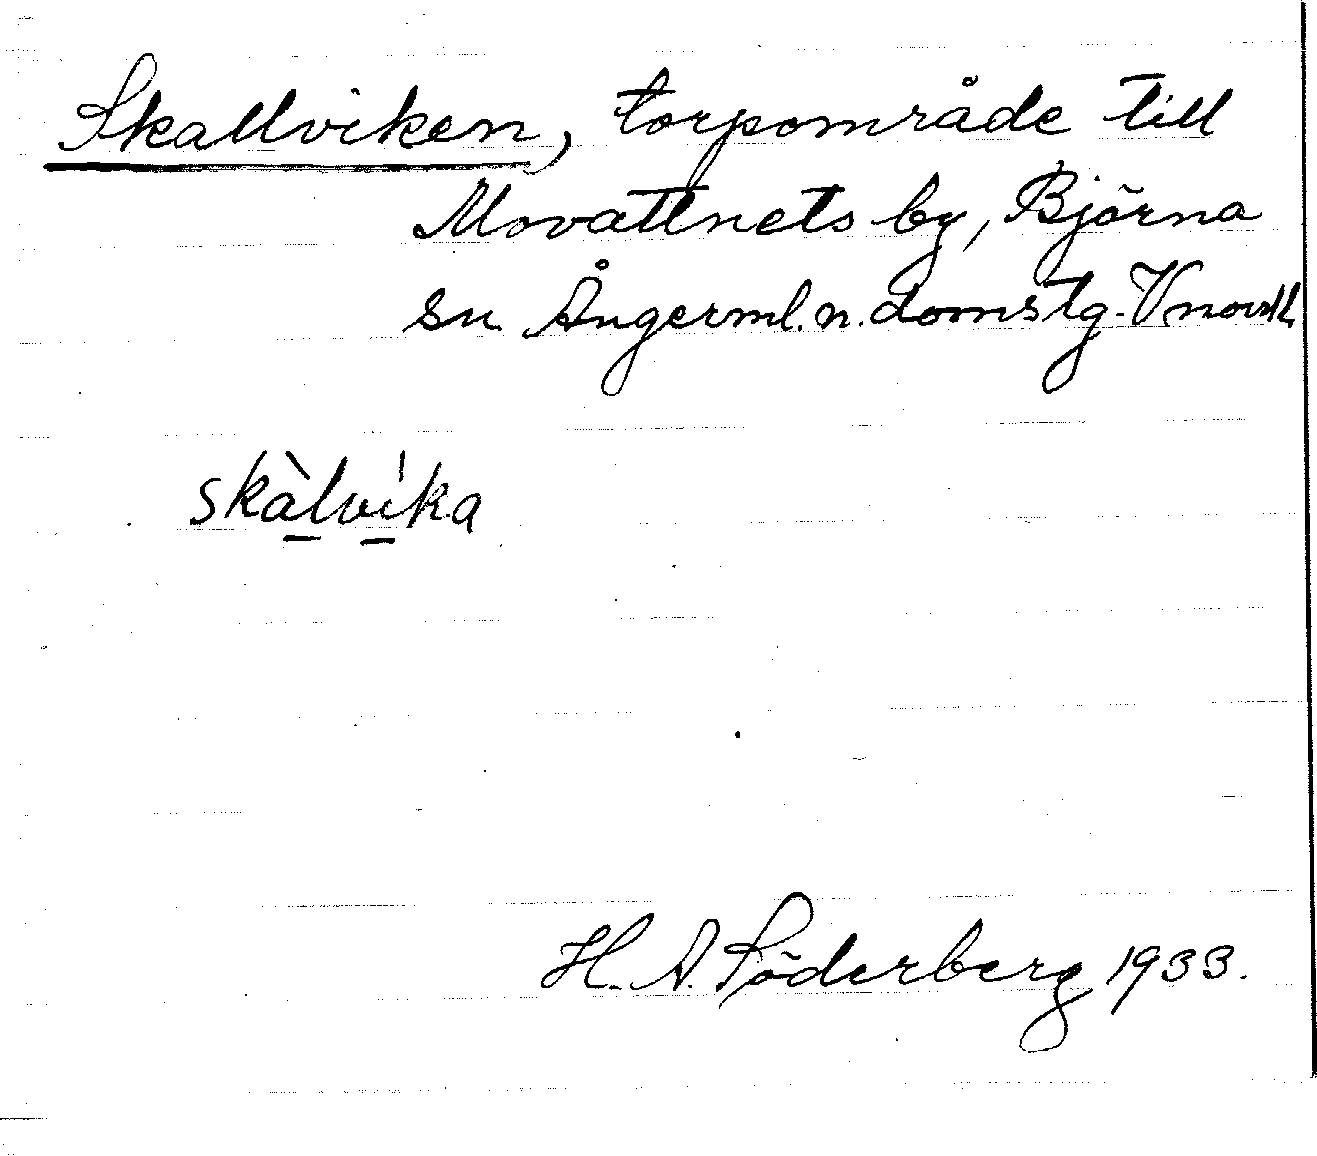 Skallviken, torpområde till
Movattnets by, Björna
sn. Ångerml. n. domstg. Vnorrl.
skàlvíka
H. A. Söderberg 1933.